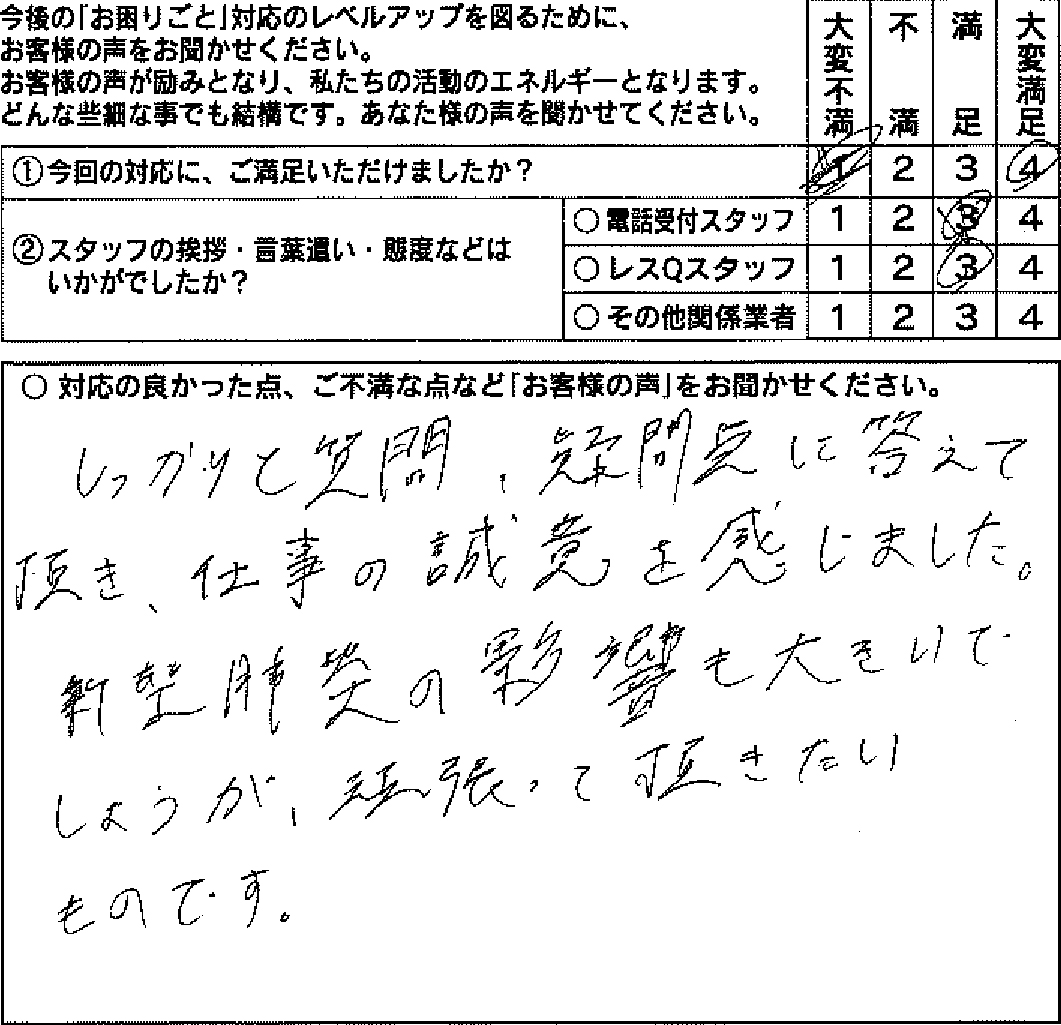 今後の「お困りごと」対応のレベルアップを図るために、
お客様の声をお聞かせください。
お客様の声が励みとなり、私たちの活動のエネルギーとなります。
どんな些細な事でも結構です。あなた様の声を聞かせてください。
大変不満 不満 満足 大変満足
①今回の対応に、ご満足いただけましたか？ 1 2 3 4
②スタッフの挨拶・言葉遣い・態度などは
いかがでしたか？
○電話受付スタッフ 1 2 3 4
○レスQスタッフ 1 2 3 4
○その他関係業者 1 2 3 4
○ 対応の良かった点、ご不満な点など「お客様の声」をお聞かせください。
しっかりと質問、疑問点に答えて
頂き、仕事の誠意を感じました。
新型肺炎の影響も大きいで
しょうが、頑張って頂きたい
ものです。